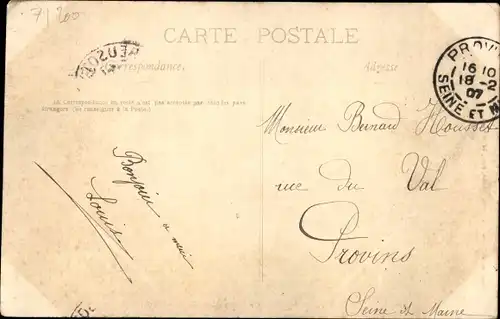 71200
CARTE POSTALE
Correspondance.
Adresse
La Correspondance au recto n'est pas acceptée par tous les pays
étrangers (Se renseigner à la Poste)
PROVI
16 10
18-2
07
SEINE ET M
Monsieur Bernard Housset
rue du Val
Provins
Seine et Marne
Bonjour à
Louis